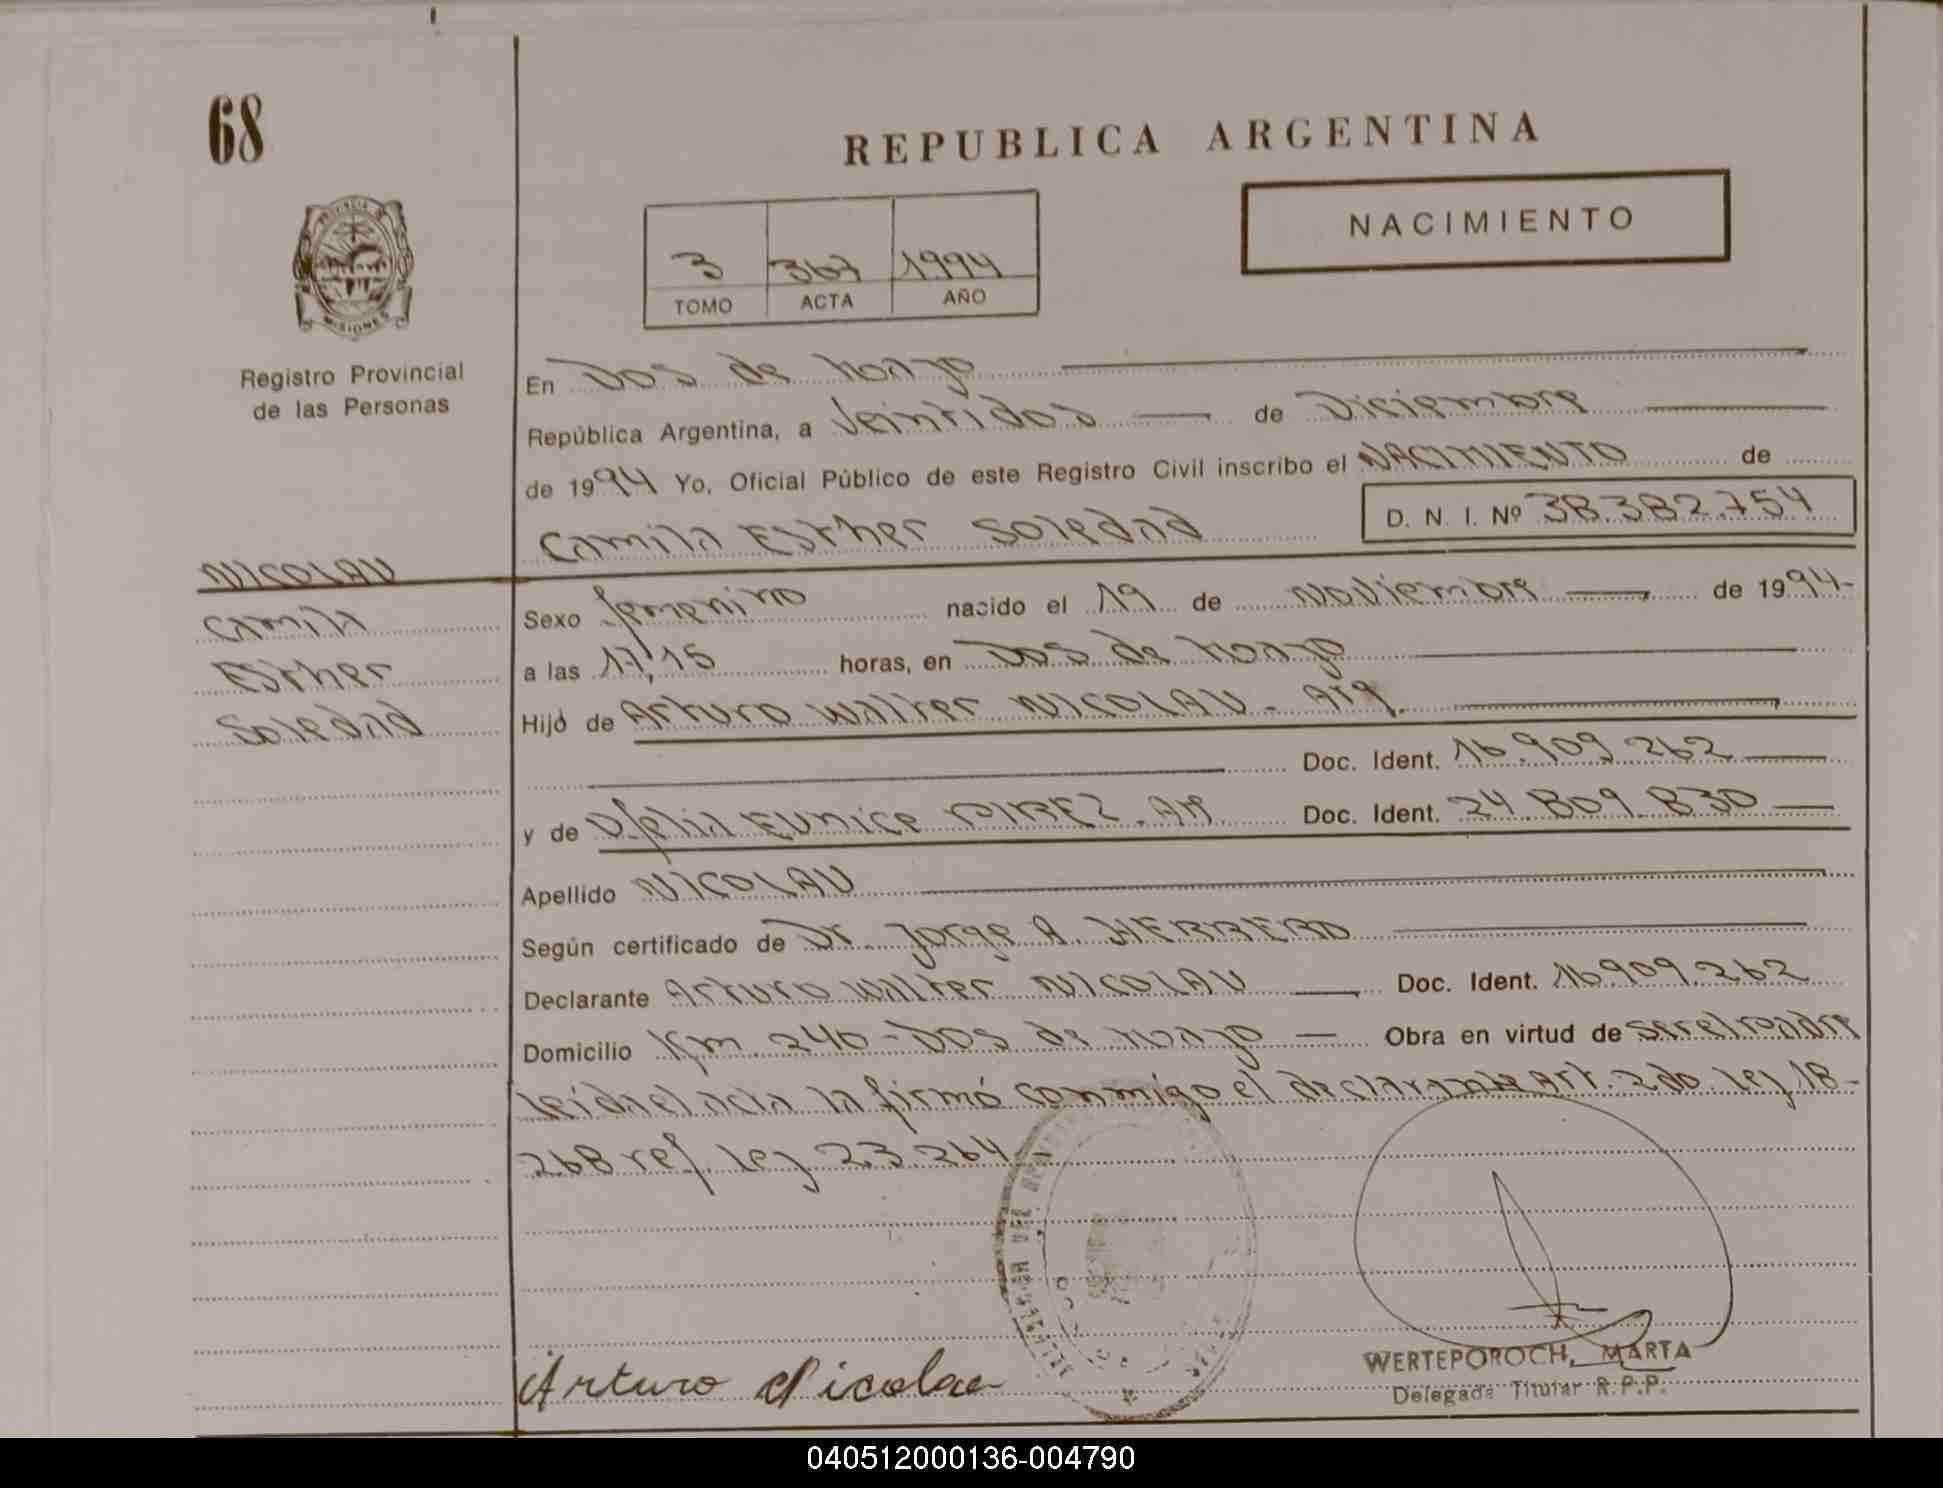 68
REPUBLICA ARGENTINA
NACIMIENTO
3 367 1994
TOMO ACTA AÑO
MISIONES
Registro Provincial
de las Personas
En Dos de Mayo
República Argentina, a Veintidos de Diciembre
de 1994 Yo, Oficial Público de este Registro Civil inscribo el NACIMIENTO de
Camila Esther Soledad D. N. I. Nº 38.382.754
NICOLAU
Camila
Esther
Soledad
Sexo femenino nacido el 19 de Noviembre de 1994-
a las 17,15 horas, en Dos de Mayo
Hijo de Arturo Walter NICOLAU - Arg.
Doc. Ident. 16.909.262
y de Ofelia Eunice PIREZ. Doc. Ident. 24.809.830
Apellido NICOLAU
Según certificado de Dr. Jorge A. HERRERO
Declarante Arturo Walter NICOLAU Doc. Ident. 16.909.262
Domicilio Km. 240 - Dos de Mayo Obra en virtud de
Leida el acta la firmó conmigo el declarante Art. 2do. Ley 18-
268 ref. Ley 23.264
Arturo Nicolau
WERTEPOROCH, MARTA
Delegada Titular R.P.P.
040512000136-004790